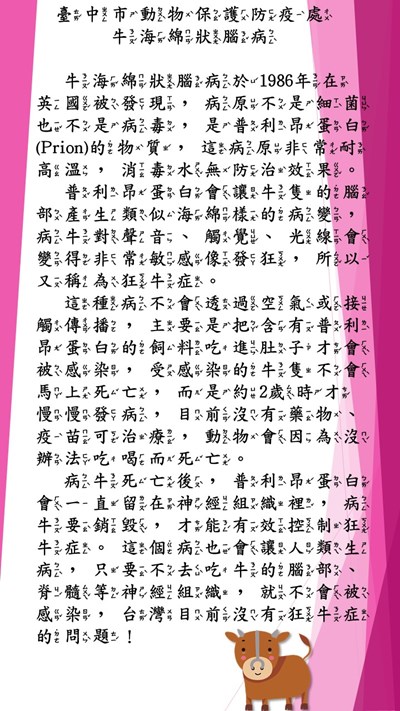 臺中市動物保護防疫處
牛海綿狀腦病
牛海綿狀腦病於1986年在
英國被發現，病原不是細菌
也不是病毒，是普利昂蛋白
(Prion)的物質，這病原非常耐
高溫，消毒水無防治效果。
普利昂蛋白會讓牛隻的腦
部產生類似海綿樣的病變，
病牛對聲音、觸覺、光線會
變得非常敏感像發狂，所以
又稱為狂牛症。
這種病不會透過空氣或接
觸傳播，主要是把含有普利
昂蛋白的飼料吃進肚子才會
被感染，受感染的牛隻不會
馬上死亡，而是約2歲時才
慢慢發病，目前沒有藥物、
疫苗可治療，動物會因為沒
辦法吃喝而死亡。
病牛死亡後，普利昂蛋白
會一直留在神經組織裡，病
牛要銷毀，才能有效控制狂
牛症。這個病也會讓人類生
病，只要不去吃牛的腦部、
脊髓等神經組織，就不會被
感染，台灣目前沒有狂牛症
的問題！